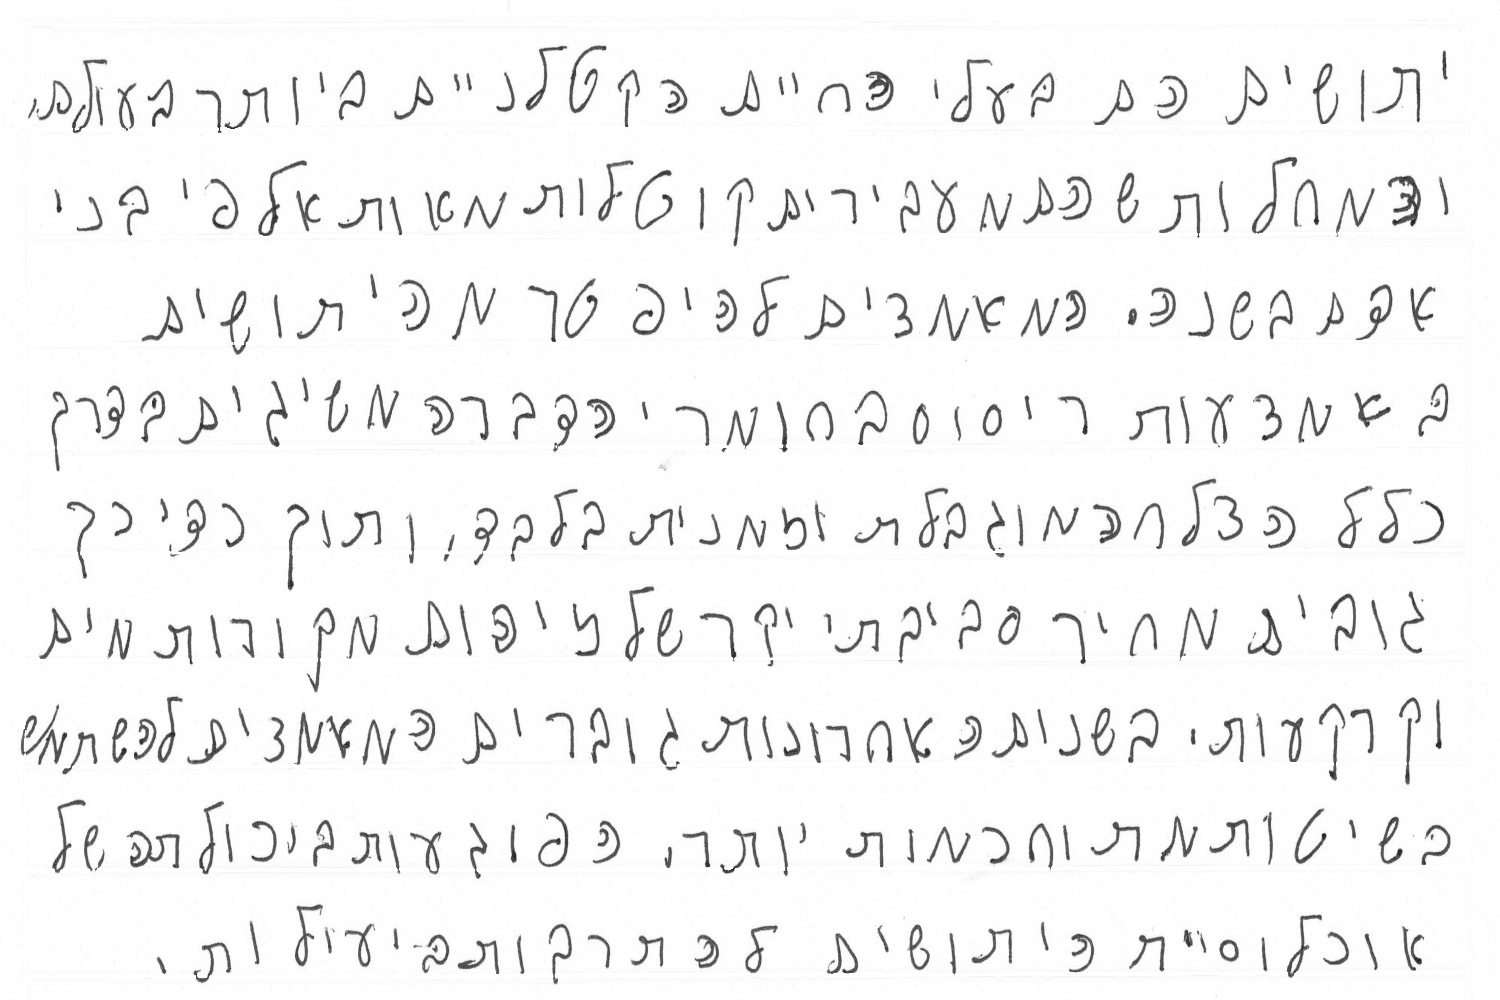 יתושים הם בעלי החיים הקטלניים ביותר בעולם,
והמחלות שהם מעבירים קוטלות מאות אלפי בני
אדם בשנה. המאמצים להיפטר מהיתושים
באמצעות ריסוס בחומרי הדברה משיגים בדרך
כלל הצלחה מוגבלת וזמנית בלבד, ותוך כדי כך
גובים מחיר סביבתי יקר של זיהום מקורות מים
וקרקעות. בשנים האחרונות גוברים המאמצים להשתמש
בשיטות מתוחכמות יותר, הפוגעות ביכולתה של
אוכלוסיית היתושים להתרבות ביעילות.